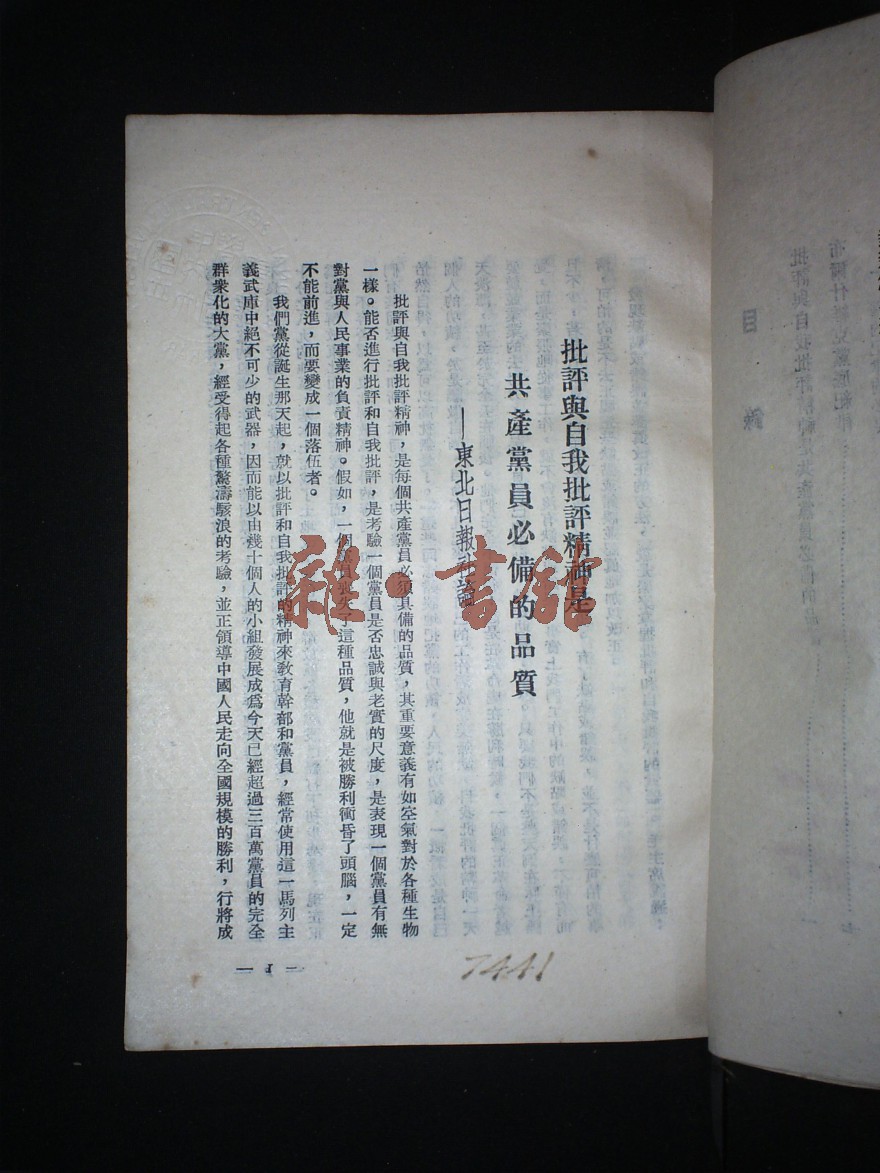 批評與自我批評精神是
共產黨員必備的品質
——東北日報社論
批評與自我批評精神,是每個共產黨員必須具備的品質,其重要意義有如空氣對於各種生物
一樣。能否進行批評和自我批評,是考驗一個黨員是否忠誠與老實的尺度,是表現一個黨員有無
對黨與人民事業的負責精神。假如,一個黨員喪失了這種品質,他就是被勝利衝昏了頭腦,一定
不能前進,而要變成一個落伍者。
我們黨從誕生那天起,就以批評和自我批評的精神來教育幹部和黨員,經常使用這一馬列主
義武庫中絕不可少的武器,因而能以由幾十個人的小組發展成爲今天已經超過三百萬黨員的完全
群衆化的大黨,經受得起各種驚濤駭浪的考驗,並正領導中國人民走向全國規模的勝利,行將成
— 1 —
7441
雜·書館
目 錄